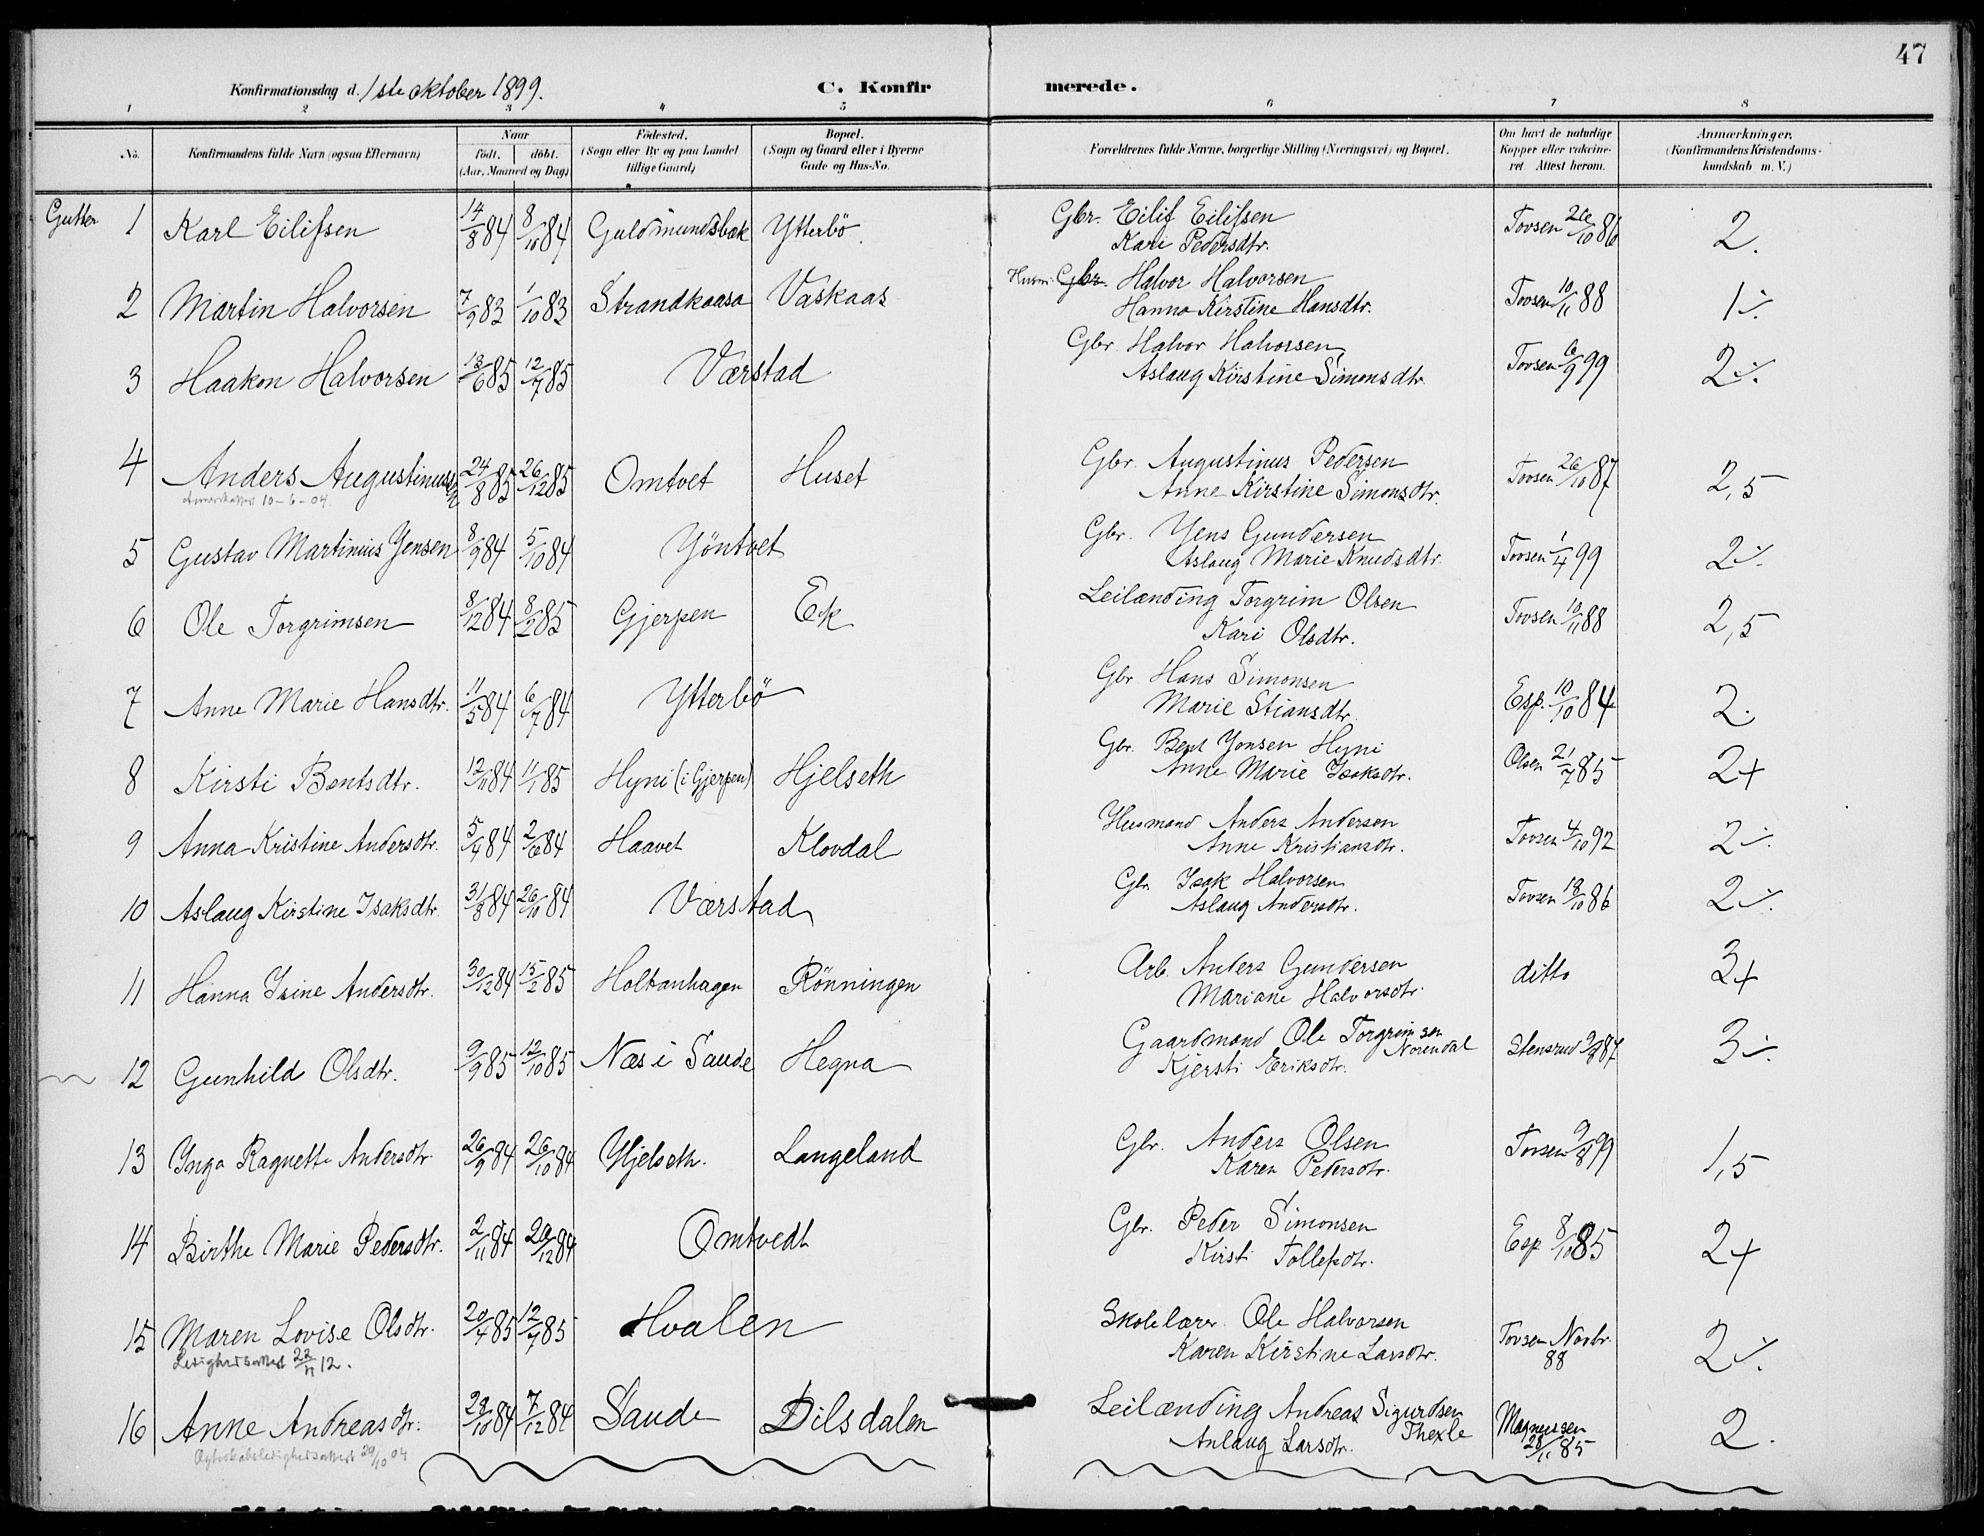 47
Konfirmationsdag d. 1ste oktober 1899.
C. Konfirmerede.
1 2 3 4 5 6 7 8
No.
Konfirmandens fulde Navn (ogsaa Efternavn)
Naar
födt. döbt.
(Aar, Maaned og Dag)
Födested.
(Sogn eller By og paa Landet
tillige Gaard)
Bopæl.
(Sogn og Gaard eller i Byerne
Gade og Hus-No.
Forældrenes fulde Navne, borgerlige Stilling (Næringsvei) og Bopæl.
Om havt de naturlige
Kopper eller vakcine-
ret. Attest herom.
Anmærkninger.
(Konfirmandens Kristendoms-
kundskab m. V.)
Gutter 1 Karl Eilifsen 14/8 84 8/10 84 Guldmundsbæk Ytterbö. Gbr. Eilif Eilifsen Tovsen 26/10 86 2.
Kari Pedersdtr.
2 Martin Halvorsen 7/9 83 1/10 83 Strandkaasa Vaskaas Husm. Gbr. Halvor Halvorsen Tovsen 10/11 88 1 ÷.
Hanna Kirstine Hansdtr.
3 Haakon Halvorsen 13/6 85 12/7 85 Værstad Gbr. Halvor Halvorsen Tovsen 6/9 99 2 ÷.
Aslaug Kirstine Simonsdtr
4 Anders Augustinussen 24/8 85 26/12 85 Omtvet Huset Gbr. Augustinus Pedersen Tovsen 26/10 87 2,5
10-6-04. Anne Kirstine Simonsdtr.
5 Gustav Martinius Jensen 8/9 84 5/10 84 Yöntvet Gbr. Jens Gundersen Tovsen 1/4 99 2 ÷.
Aslaug Marie Knudsdtr.
6 Ole Torgrimsen 8/12 84 8/2 85 Gjerpen Ek Leilænding Torgrim Olsen Tovsen 10/11 88 2,5
Kari Olsdtr.
7 Anne Marie Hansdtr. 11/5 84 6/7 84 Ytterbö Gbr Hans Simonsen Esp. 10/10 84 2.
Marie Stiansdtr.
8 Kirsti Bentsdtr. 12/11 84 11/1 85 Hyni (i Gjerpen) Hjelseth Gbr. Bent Jonsen Hyni Olsen 21/7 85 2+
Anne Marie Isaksdtr.
9 Anna Kristine Andersdtr. 5/4 84 2/6 84 Haavet Klovdal Husmand Anders Andersen Tovsen 4/10 92 2 ÷.
Anne Kristiansdtr.
10 Aslaug Kirstine Isaksdtr. 31/8 84 26/10 84 Værstad Gbr. Isak Halvorsen Tovsen 18/10 86 2 ÷.
Aslaug Andersdtr.
11 Hanna Isine Andersdtr. 30/12 84 15/2 85 Holtanhagen Rönningen Arb. Anders Gundersen ditto 3+
Mariane Halvorsdtr.
12 Gunhild Olsdtr. 9/9 85 12/10 85 Næs i Saude Hegna Gaardmand Ole Torgrimsen Norendal Stensrud 9/9 87 3 ÷.
Kjersti Eriksdtr.
13 Inga Ragnette Andersdtr. 26/9 84 26/10 84 Hjelseth. Langeland Gbr. Anders Olsen Tovsen 9/8 99 1,5
Karen Pedersdtr.
14 Birthe Marie Pedersdtr. 2/11 84 29/12 84 Omtvedt Gbr. Peder Simonsen Esp 8/10 85 2+
Kirsti Tollefsdtr.
15 Maren Lovise Olsdtr. 20/4 85 12/7 85 Hvalen Skolelærer Ole Halvorsen Tovsen Novbr. 88 2 ÷.
Ledighedsattest 22/11 12. Karen Kirstine Larsdtr.
16 Anne Andreasdtr. 29/10 84 7/12 84 Saude Dilsdalen Leilænding Andreas Sigurdsen Thexle Magnussen 28/11 85 2.
29/10 04 Anlaug Larsdtr.